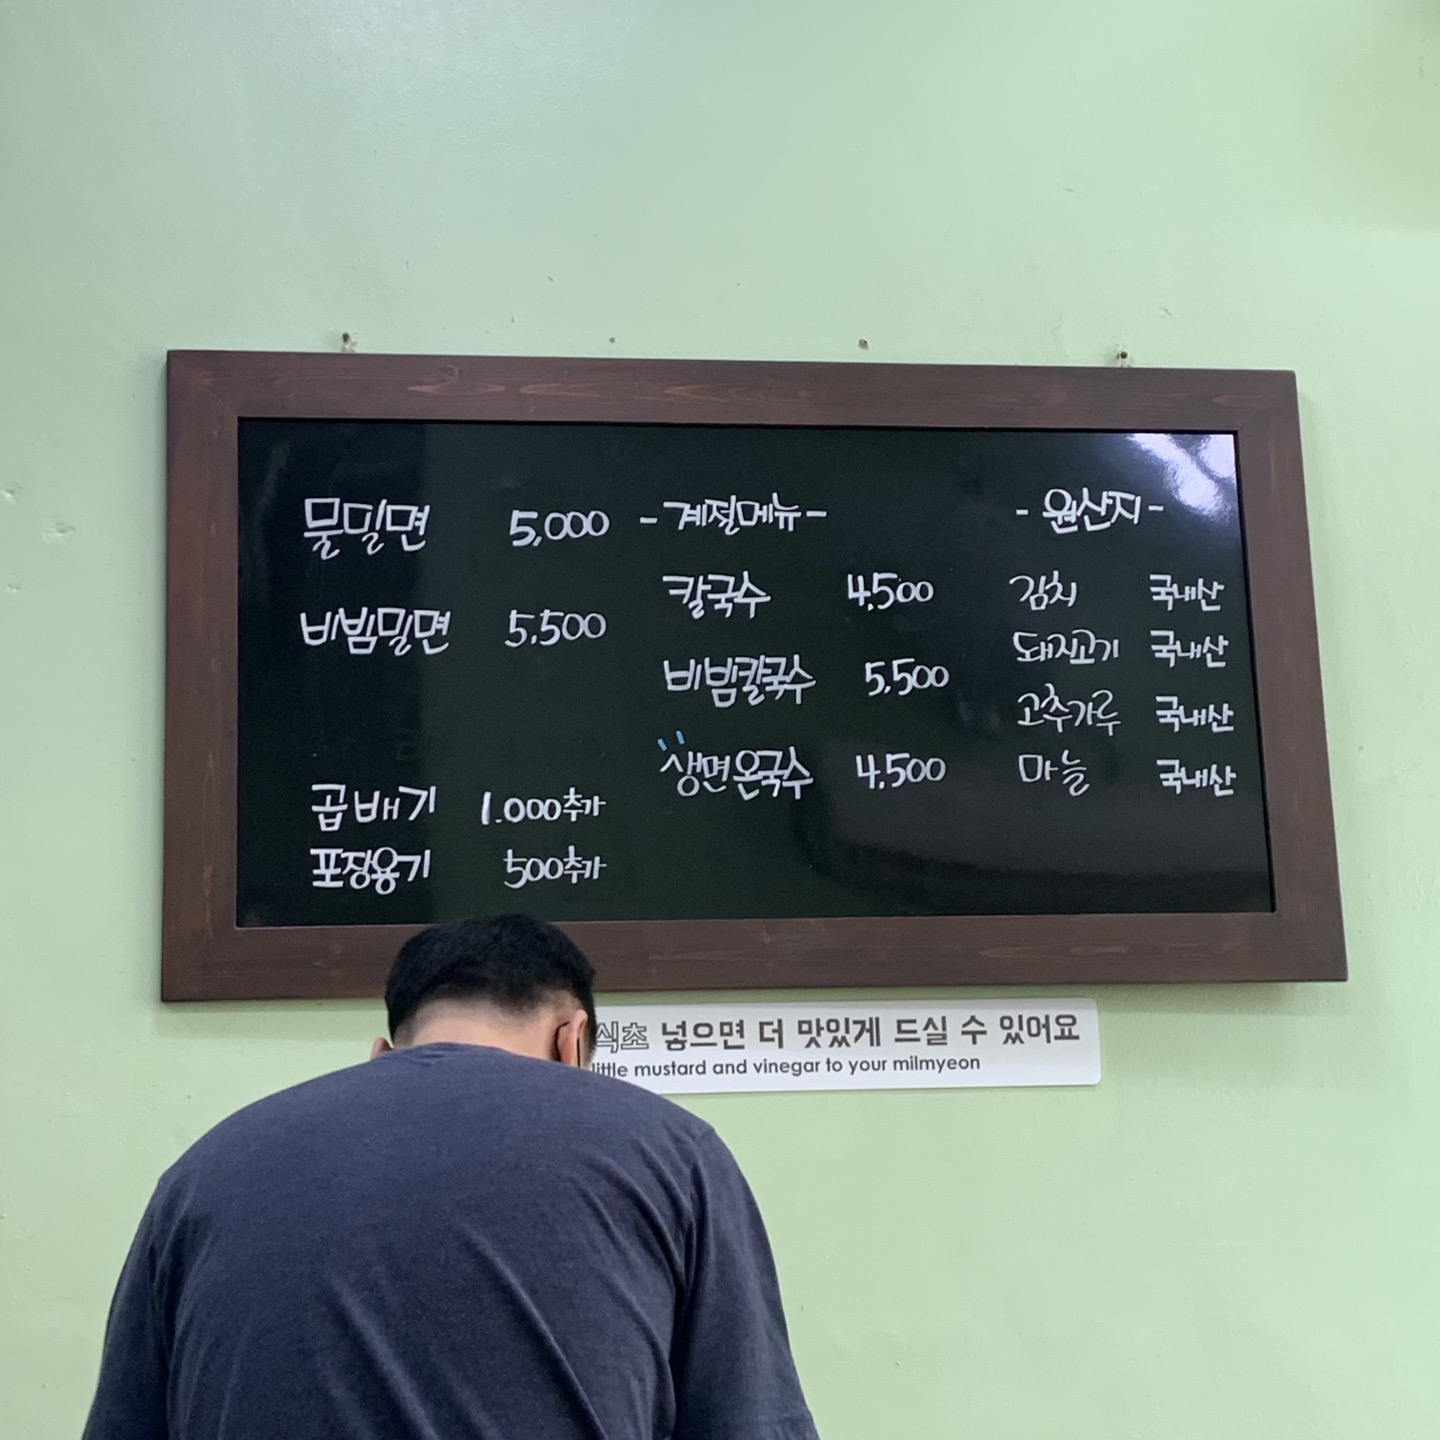 물밀면 5,000
비빔밀면 5,500
곱배기 1.000추가
포장용기 500추가
-계절메뉴-
칼국수 4,500
비빔칼국수 5,500
생면온국수 4,500
-원산지-
김치 국내산
돼지고기 국내산
고추가루 국내산
마늘 국내산
식초 넣으면 더 맛있게 드실 수 있어요
little mustard and vinegar to your milmyeon